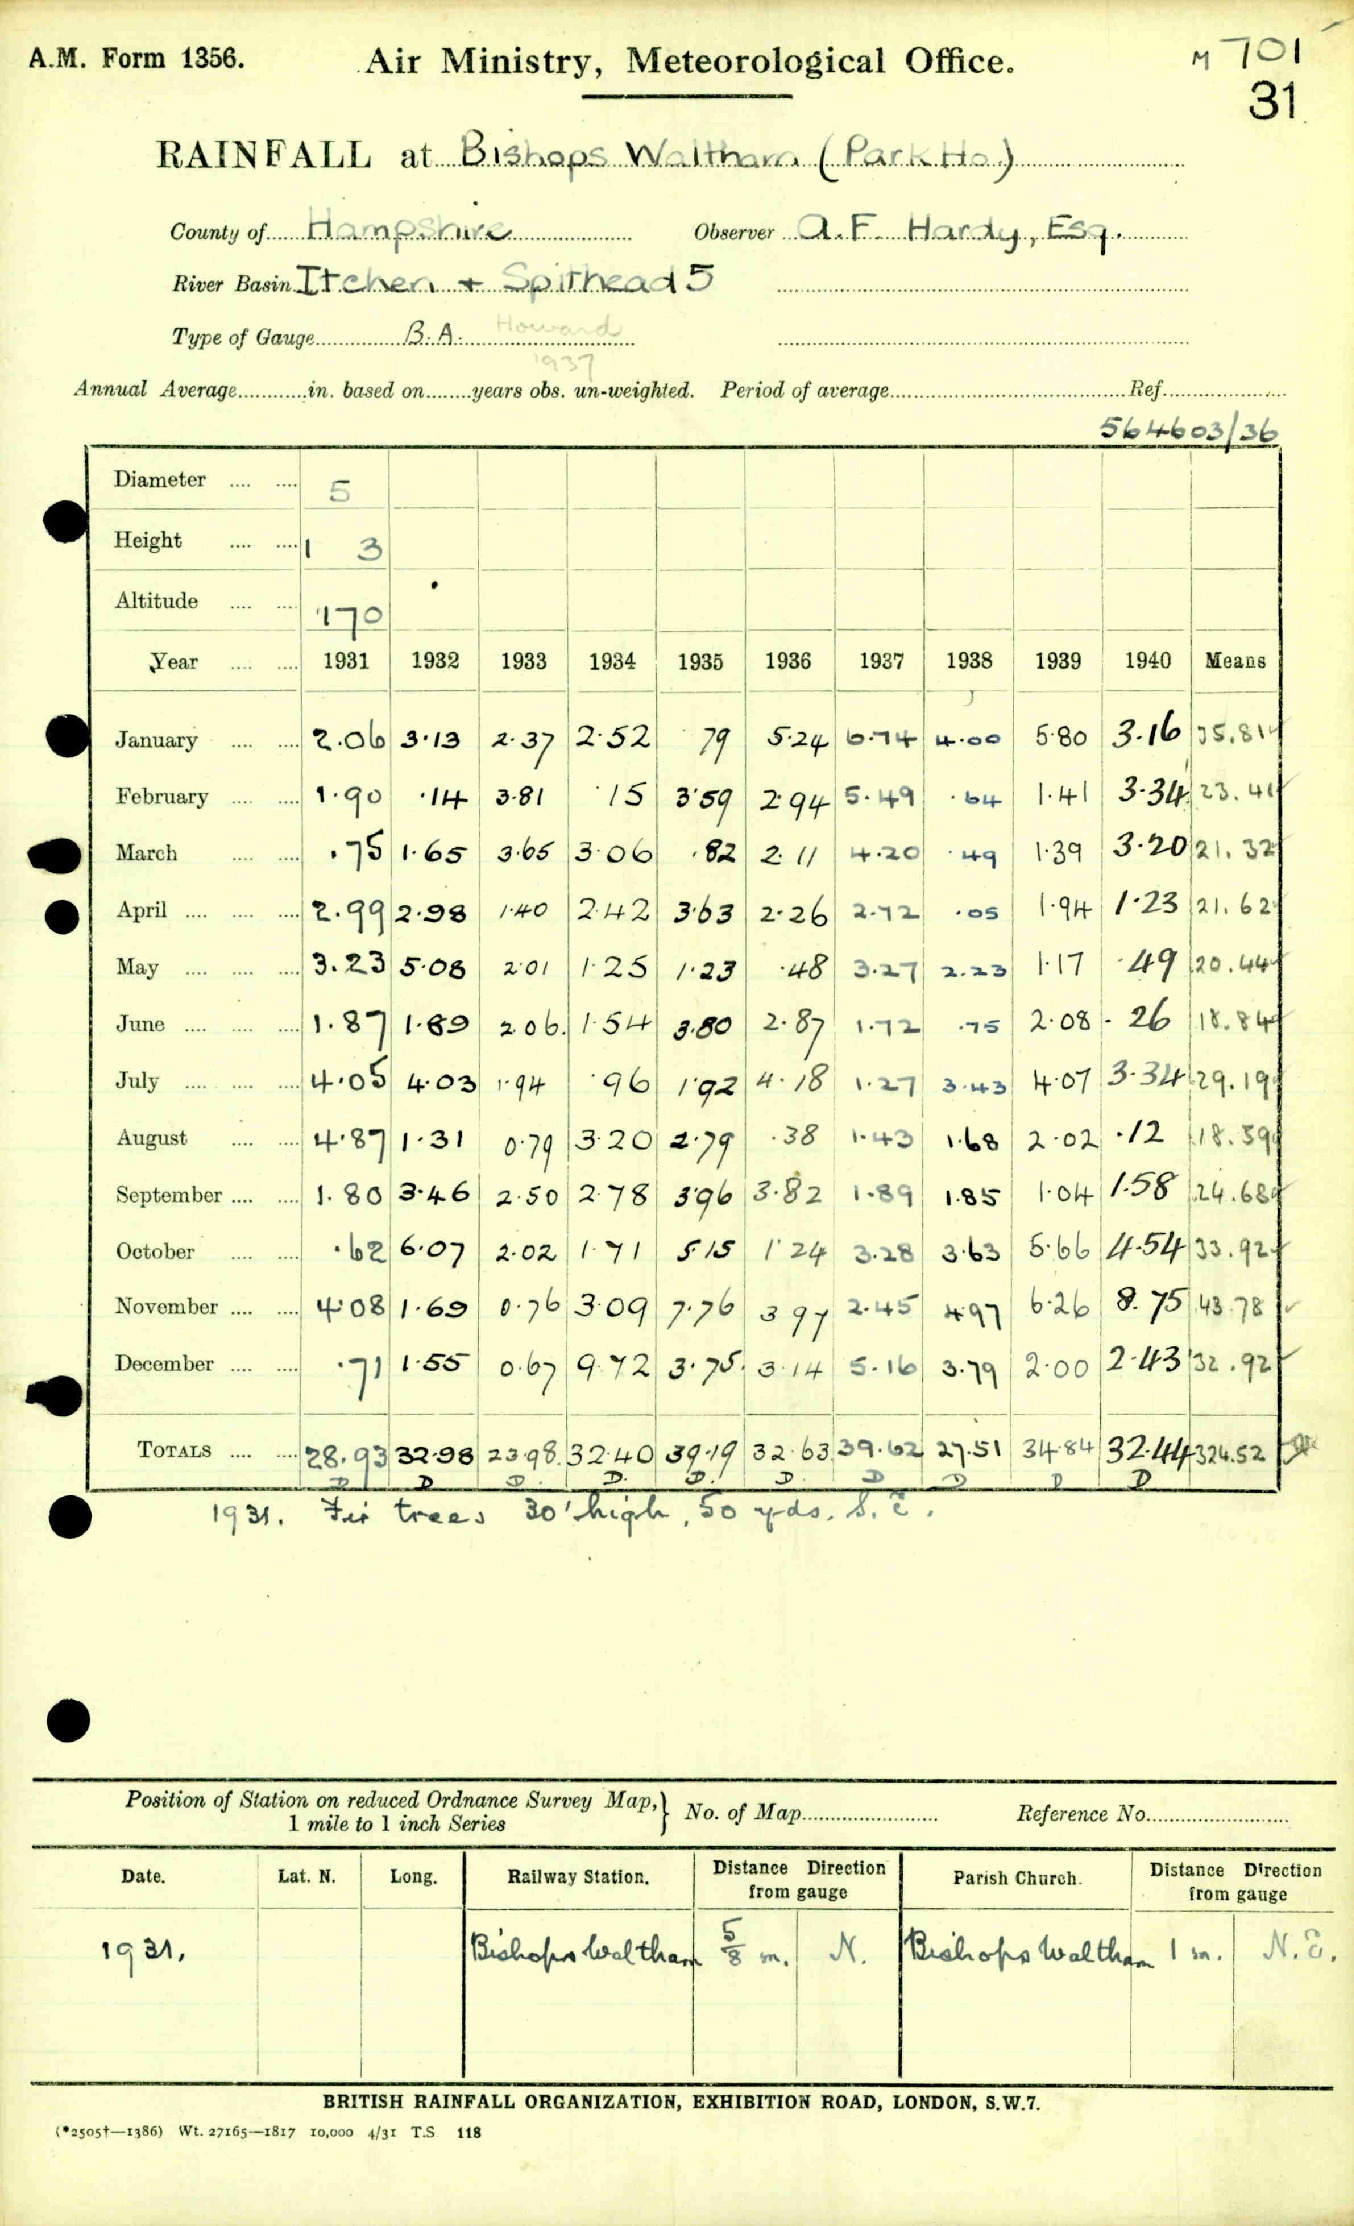 A.M. Form 1356. Air Ministry, Meteorological Office. M 701
31
RAINFALL at Bishops Waltham (Park Ho.)
County of Hampshire Observer A.F. Hardy, Esq.
River Basin Itchen + Spithead 5
Type of Gauge B.A. Howard
1937
Annual Average in. based on years obs. un-weighted. Period of average Ref.
564603/36
Diameter 5
Height 1 3
Altitude 170
Year 1931 1932 1933 1934 1935 1936 1937 1938 1939 1940 Means
January 2.06 3.13 2.37 2.52 79 5.24 6.74 4.00 5.80 3.16 35.81
February 1.90 .14 3.81 .15 3.59 2.94 5.49 .64 1.41 3.34 23.41
March .75 1.65 3.65 3.06 .82 2.11 4.20 .49 1.39 3.20 21.32
April 2.99 2.98 1.40 2.42 3.63 2.26 2.72 .05 1.94 1.23 21.62
May 3.23 5.08 2.01 1.25 1.23 .48 3.27 2.23 1.17 .49 20.44
June 1.87 1.89 2.06 1.54 3.80 2.87 1.72 .75 2.08 .26 18.84
July 4.05 4.03 1.94 .96 1.92 4.18 1.27 3.43 4.07 3.34 29.19
August 4.87 1.31 0.79 3.20 2.79 .38 1.43 1.68 2.02 .12 18.59
September 1.80 3.46 2.50 2.78 3.96 3.82 1.89 1.85 1.04 1.58 24.68
October .62 6.07 2.02 1.71 5.15 1.24 3.28 3.63 5.66 4.54 33.92
November 4.08 1.69 0.76 3.09 7.76 3.97 2.45 4.97 6.26 8.75 43.78
December .71 1.55 0.67 9.72 3.75 3.14 5.16 3.79 2.00 2.43 32.92
TOTALS 28.93 32.98 23.98 32.40 39.19 32.63 39.62 27.51 34.84 32.44 324.52
D D D D. D. D. D D D D
1931. Fir trees 30' high, 50 yds. S.E.
Position of Station on reduced Ordnance Survey Map, } No. of Map Reference No.
1 mile to 1 inch Series
Date. Lat. N. Long. Railway Station. Distance Direction from gauge Parish Church. Distance Direction from gauge
1931. Bishops Waltham 5/8 m. N. Bishops Waltham 1 m. N.E.
BRITISH RAINFALL ORGANIZATION, EXHIBITION ROAD, LONDON, S.W.7.
(*2505†—1386) Wt. 27165—1817 10,000 4/31 T.S 118